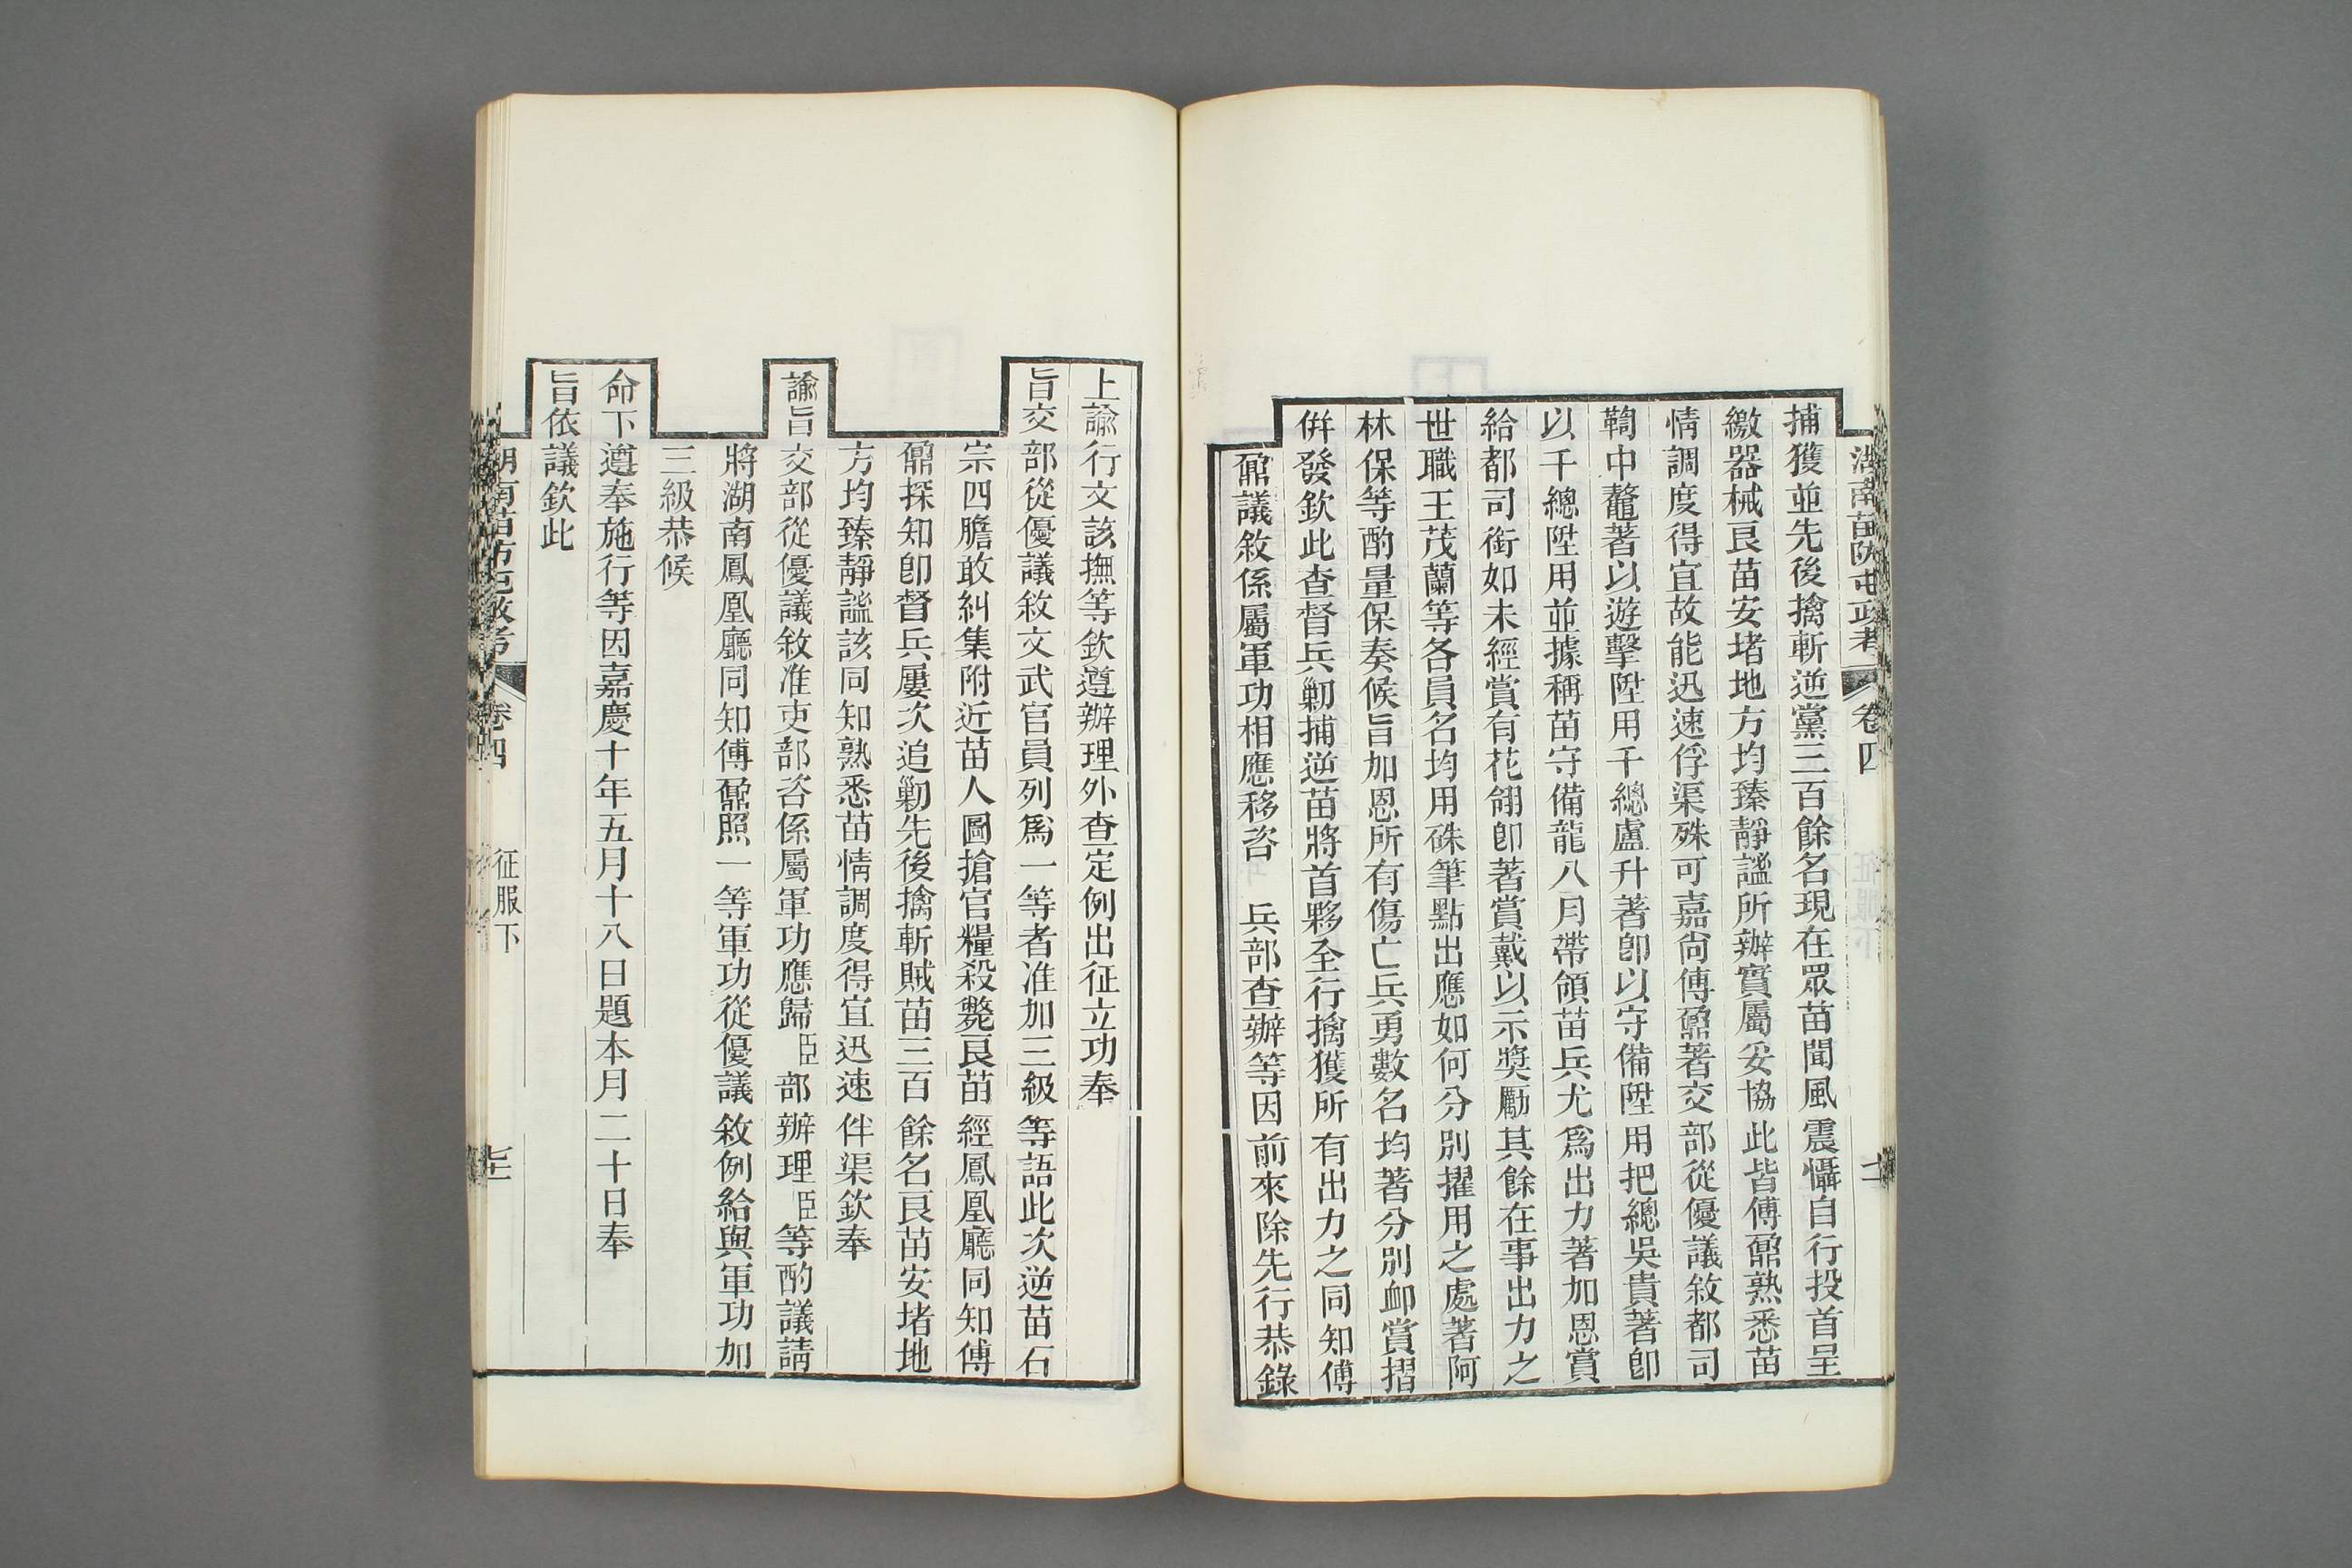 湖南苗防屯政考 卷四
捕獲並先後擒斬逆黨三百餘名現在眾苗聞風震懾自行投首呈
繳器械良苗安堵地方均臻靜謐所辦實屬妥協此皆傅鼐熟悉苗
情調度得宜故能迅速俘渠殊可嘉尚傅鼐著交部從優議敘都司
鞫中鼇著以遊擊陞用千總盧升著卽以守備陞用把總吳貴著卽
以千總陞用並據稱苗守備龍八月帶領苗兵尤爲出力著加恩賞
給都司銜如未經賞有花翎卽著賞戴以示獎勵其餘在事出力之
世職王茂蘭等各員名均用硃筆點出應如何分別擢用之處著阿
林保等酌量保奏候旨加恩所有傷亡兵勇數名均著分別卹賞摺
併發欽此查督兵勦捕逆苗將首夥全行擒獲所有出力之同知傅
鼐議敘係屬軍功相應移咨 兵部查辦等因前來除先行恭錄
上諭行文該撫等欽遵辦理外查定例出征立功奉
旨交部從優議敘文武官員列爲一等者准加三級等語此次逆苗石
宗四膽敢糾集附近苗人圖搶官糧殺斃良苗經鳳凰廳同知傅
鼐探知卽督兵屢次追勦先後擒斬賊苗三百餘名良苗安堵地
方均臻靜謐該同知熟悉苗情調度得宜迅速伴渠欽奉
諭旨交部從優議敘准吏部咨係屬軍功應歸臣部辦理臣等酌議請
將湖南鳳凰廳同知傅鼐照一等軍功從優議敘例給與軍功加
三級恭候
命下遵奉施行等因嘉慶十年五月十八日題本月二十日奉
旨依議欽此
湖南苗防屯政考 卷四 征服下